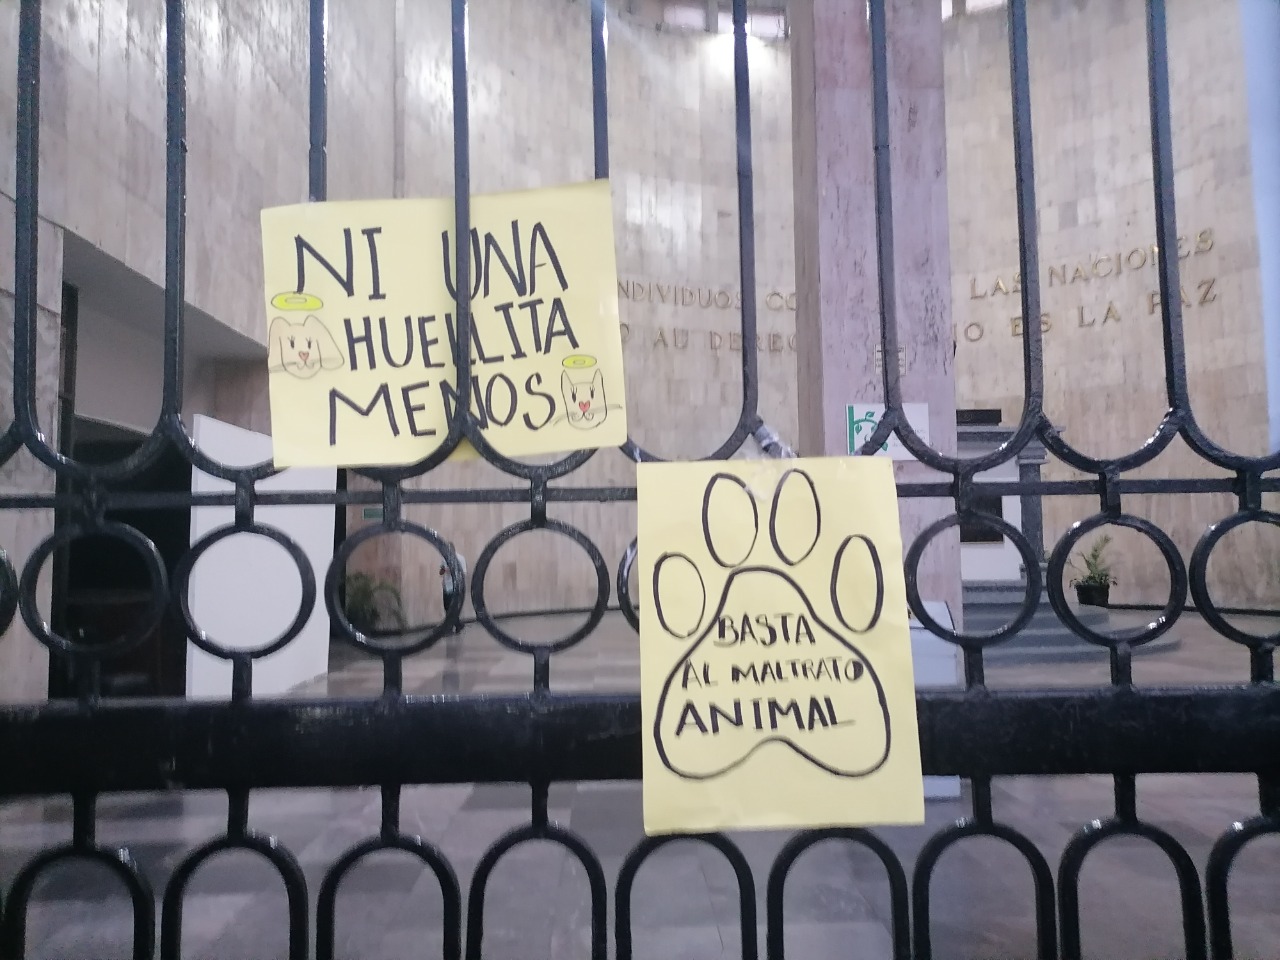 NI UNA
HUELLITA
MENOS
BASTA
AL MALTRATO
ANIMAL
NDIVIDUOS CO LAS NACIONES
O AU DEREC O ES LA PAZ